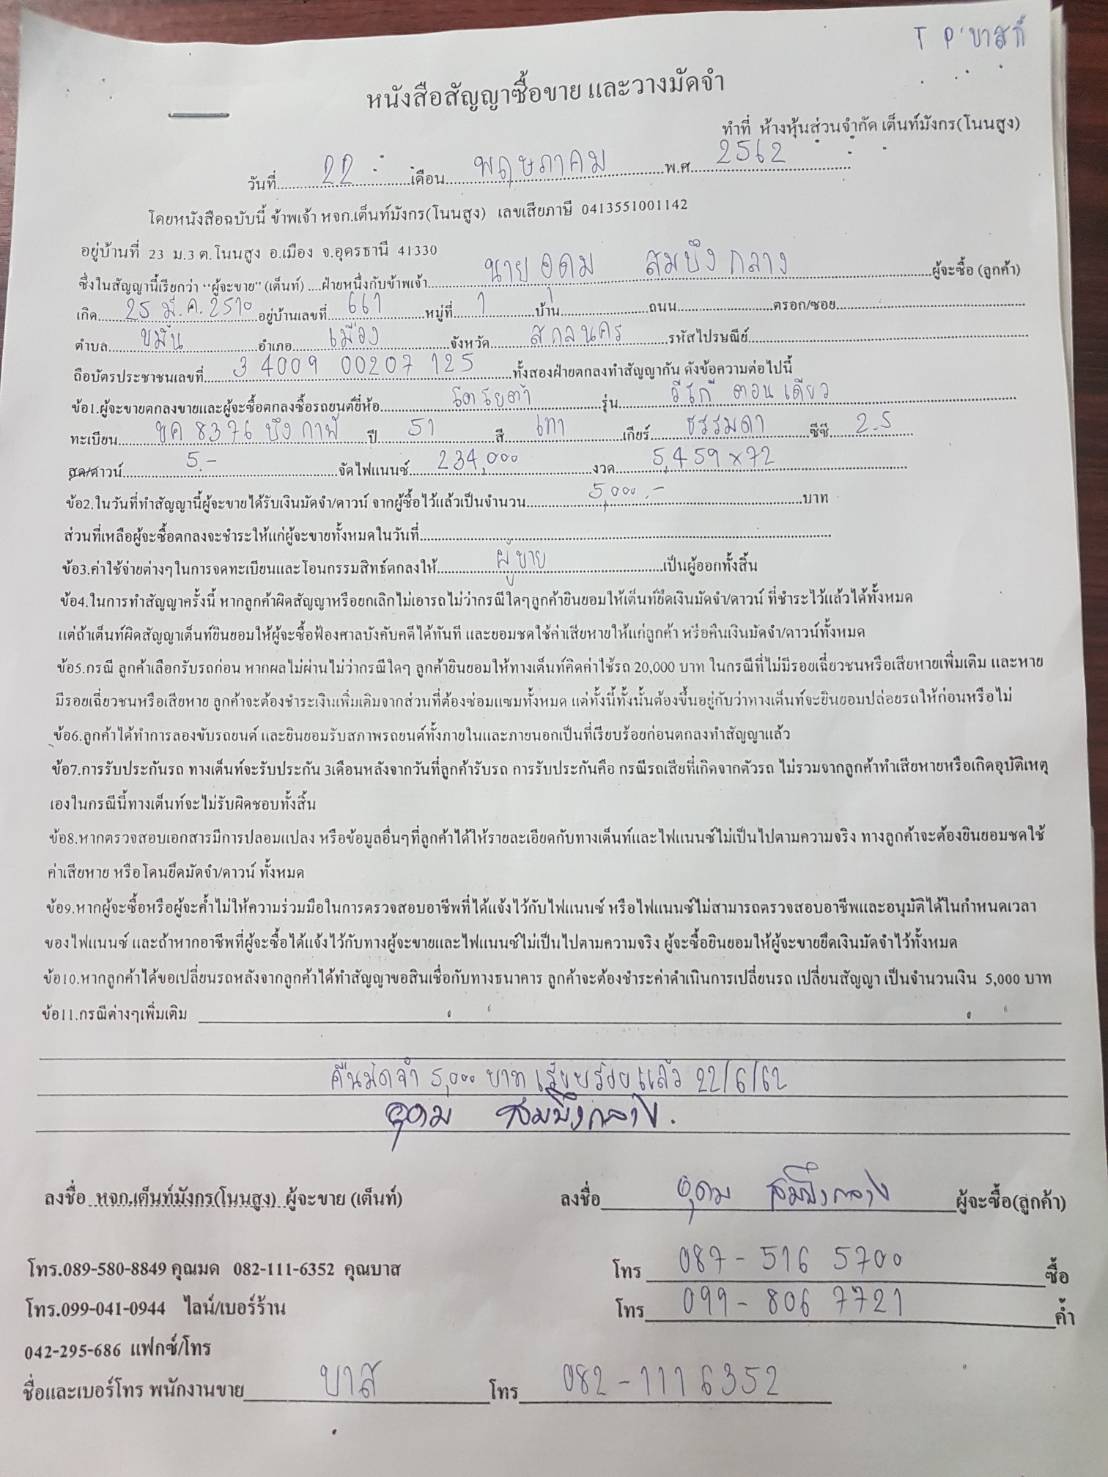 T P'บาสก์
หนังสือสัญญาซื้อขาย และวางมัดจำ
ทำที่ ห้างหุ้นส่วนจำกัด เต็นท์มังกร(โนนสูง)
วันที่ 22 เดือน พฤษภาคม พ.ศ. 2562
โดยหนังสือฉบับนี้ ข้าพเจ้า หจก.เต็นท์มังกร(โนนสูง) เลขเสียภาษี 0413551001142
อยู่บ้านที่ 23 ม.3 ต.โนนสูง อ.เมือง จ.อุดรธานี 41330
ซึ่งในสัญญานี้เรียกว่า "ผู้จะขาย" (เต็นท์) ....ฝ่ายหนึ่งกับข้าพเจ้า นาย อุดม สมบึงกลาง ผู้จะซื้อ (ลูกค้า)
เกิด 25 มี.ค. 2510 อยู่บ้านเลขที่ 661 หมู่ที่ 1 บ้าน ถนน ตรอก/ซอย
ตำบล ขมิ้น อำเภอ เมือง จังหวัด สกลนคร รหัสไปรษณีย์
ถือบัตรประชาชนเลขที่ 3 4009 00207 125 ทั้งสองฝ่ายตกลงทำสัญญากัน ดังข้อความต่อไปนี้
ข้อ1.ผู้จะขายตกลงขายและผู้จะซื้อตกลงซื้อรถยนต์ยี่ห้อ โตโยต้า รุ่น วีโก้ ตอนเดียว
ทะเบียน ขค 8376 บึงกาฬ ปี 51 สี เทา เกียร์ ธรรมดา ซีซี 2.5
สด/ดาวน์ 5.- จัดไฟแนนซ์ 234,000 งวด 5,459×72
ข้อ2.ในวันที่ทำสัญญานี้ผู้จะขายได้รับเงินมัดจำ/ดาวน์ จากผู้ซื้อไว้แล้วเป็นจำนวน 5,000.- บาท
ส่วนที่เหลือผู้จะซื้อตกลงจะชำระให้แก่ผู้จะขายทั้งหมดในวันที่
ข้อ3.ค่าใช้จ่ายต่างๆในการจดทะเบียนและโอนกรรมสิทธิ์ตกลงให้ ผู้ขาย เป็นผู้ออกทั้งสิ้น
ข้อ4.ในการทำสัญญาครั้งนี้ หากลูกค้าผิดสัญญาหรือยกเลิกไม่เอารถไม่ว่ากรณีใดๆลูกค้ายินยอมให้เต็นท์ยึดเงินมัดจำ/ดาวน์ ที่ชำระไว้แล้วได้ทั้งหมด
แต่ถ้าเต็นท์ผิดสัญญาเต็นท์ยินยอมให้ผู้จะซื้อฟ้องศาลบังคับคดีได้ทันที และยอมชดใช้ค่าเสียหายให้แก่ลูกค้า หรือคืนเงินมัดจำ/ดาวน์ทั้งหมด
ข้อ5.กรณี ลูกค้าเลือกรับรถก่อน หากผลไม่ผ่านไม่ว่ากรณีใดๆ ลูกค้ายินยอมให้ทางเต็นท์คิดค่าใช้รถ 20,000 บาท ในกรณีที่ไม่มีรอยเฉี่ยวชนหรือเสียหายเพิ่มเติม และหาย
มีรอยเฉี่ยวชนหรือเสียหาย ลูกค้าจะต้องชำระเงินเพิ่มเติมจากส่วนที่ต้องซ่อมแซมทั้งหมด แต่ทั้งนี้ทั้งนั้นต้องขึ้นอยู่กับว่าทางเต็นท์จะยินยอมปล่อยรถให้ก่อนหรือไม่
ข้อ6.ลูกค้าได้ทำการลองขับรถยนต์ และยินยอมรับสภาพรถยนต์ทั้งภายในและภายนอกเป็นที่เรียบร้อยก่อนตกลงทำสัญญาแล้ว
ข้อ7.การรับประกันรถ ทางเต็นท์จะรับประกัน 3เดือนหลังจากวันที่ลูกค้ารับรถ การรับประกันคือ กรณีรถเสียที่เกิดจากตัวรถ ไม่รวมจากลูกค้าทำเสียหายหรือเกิดอุบัติเหตุ
เองในกรณีนี้ทางเต็นท์จะไม่รับผิดชอบทั้งสิ้น
ข้อ8.หากตรวจสอบเอกสารมีการปลอมแปลง หรือข้อมูลอื่นๆที่ลูกค้าได้ให้รายละเอียดกับทางเต็นท์และไฟแนนซ์ไม่เป็นไปตามความจริง ทางลูกค้าจะต้องยินยอมชดใช้
ค่าเสียหาย หรือโดนยึดมัดจำ/ดาวน์ ทั้งหมด
ข้อ9.หากผู้จะซื้อหรือผู้จะค้ำไม่ให้ความร่วมมือในการตรวจสอบอาชีพที่ได้แจ้งไว้กับไฟแนนซ์ หรือไฟแนนซ์ไม่สามารถตรวจสอบอาชีพและอนุมัติได้ในกำหนดเวลา
ของไฟแนนซ์ และถ้าหากอาชีพที่ผู้จะซื้อได้แจ้งไว้กับทางผู้จะขายและไฟแนนซ์ไม่เป็นไปตามความจริง ผู้จะซื้อยินยอมให้ผู้จะขายยึดเงินมัดจำไว้ทั้งหมด
ข้อ10.หากลูกค้าได้ขอเปลี่ยนรถหลังจากลูกค้าได้ทำสัญญาขอสินเชื่อกับทางธนาคาร ลูกค้าจะต้องชำระค่าดำเนินการเปลี่ยนรถ เปลี่ยนสัญญา เป็นจำนวนเงิน 5,000 บาท
ข้อ11.กรณีต่างๆเพิ่มเติม
คืนมัดจำ 5,000 บาท เรียบร้อยแล้ว 22/6/62
อุดม สมบึงกลาง.
ลงชื่อ หจก.เต็นท์มังกร(โนนสูง) ผู้จะขาย (เต็นท์) ลงชื่อ อุดม สมบึงกลาง ผู้จะซื้อ(ลูกค้า)
โทร.089-580-8849 คุณมด 082-111-6352 คุณบาส โทร 087-516 5700 ซื้อ
โทร.099-041-0944 ไลน์/เบอร์ร้าน โทร 099-806 7721 ค้ำ
042-295-686 แฟกซ์/โทร
ชื่อและเบอร์โทร พนักงานขาย บาส โทร 082-1116352